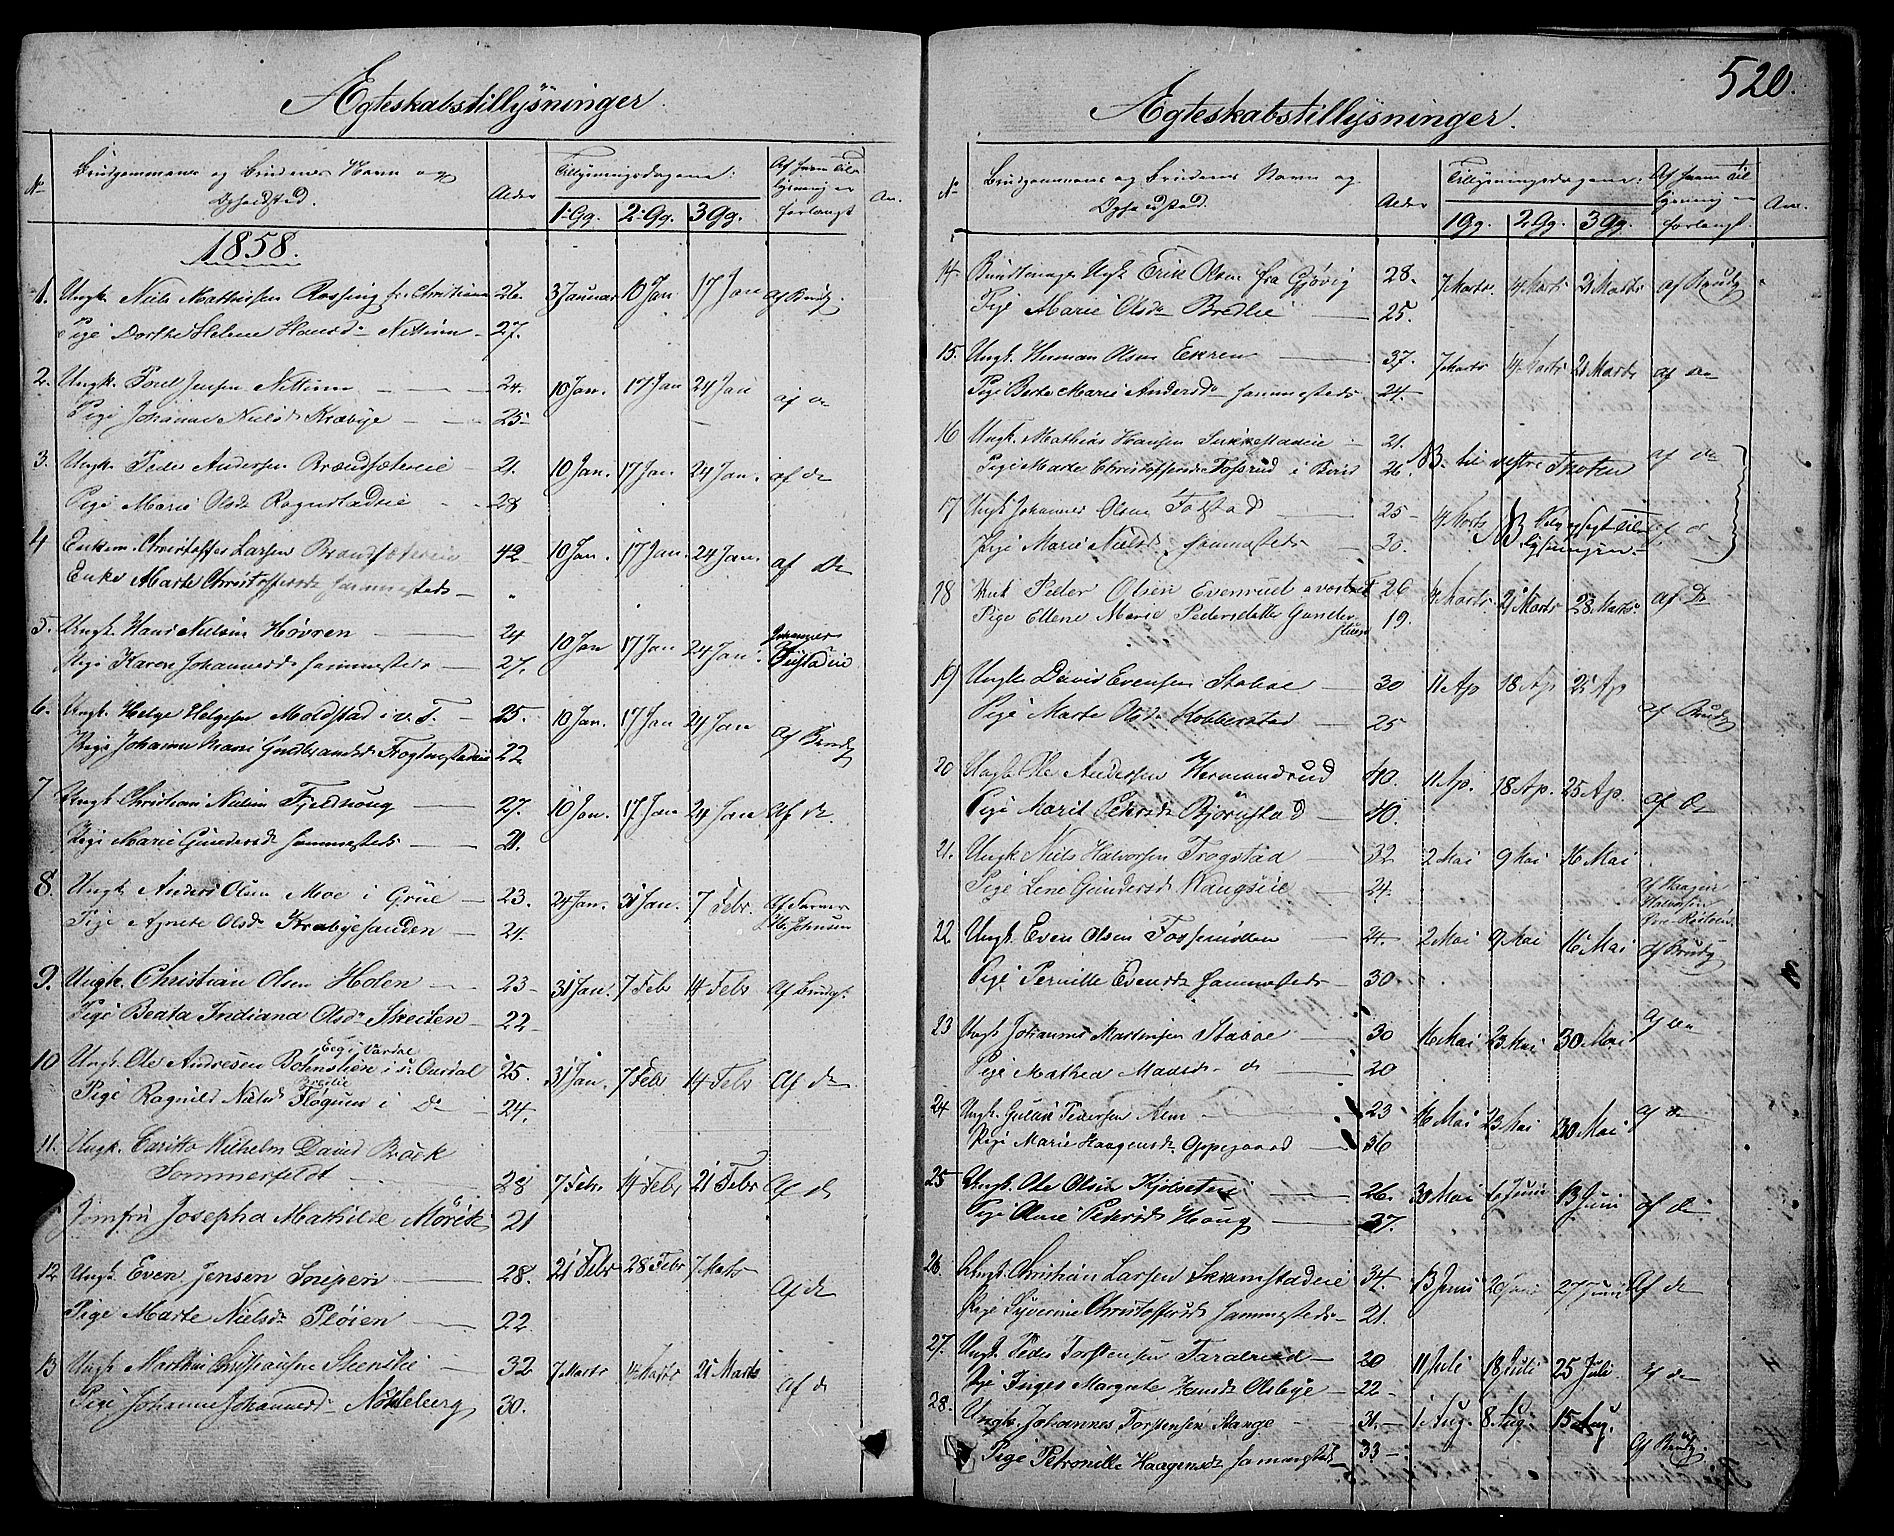 520.
Ægteskabstillysninger.
No Brudgommens og Brudens Navn og Alder Tillysningsdagene: Af hvem Til- An.
Opholdsted. 1ste Gg. 2 Gg. 3 Gg. lysning er
forlangt
1858.
1. Ungk. Niels Mathiesen Rossing fra Christiania 26. 3 Januar 10 Jan 17 Jan af Brudg.
Pige Dorthe Helene Hansd. Nettum 27.
2. Ungk. Poul Jensen Nettum 24. 10 Jan. 17 Jan 24 Jan af do
Pige Johanne Nielsd. Kræbye 25
3. Ungk. Peder Andersen Brændsætereie 21. 10 Jan. 17 Jan 24 Jan. af do
Pige Marie Olsd. Rognstadeie 28
4 Enkem. Christoffer Larsen Brændsætereie 42 10 Jan. 17 Jan. 24 Jan. af Do
Enke Marte Christoffersd. sammesteds "
5. Ungk. Hans Nielsen Høvren 24 10 Jan 17 Jan 24 Jan. Johannes
Pige Karen Johannesd. sammesteds 27.
6. Ungk. Helge Helgesen Moldstad i v. T. 25. 10 Jan. 17 Jan. 24 Jan af Brudg
Pige Johanne Marie Gulbrandsd. Frogtnestadeie 22
7 Ungk. Christian Nielsen Fjeldhoug 27. 10 Jan. 17. Jan 24 Jan Af do
Pige Marie Gundersd. sammesteds 21.
8. Ungk. Anders Olsen Moe i Grue 23. 24 Jan. 31 Jan. 7 Febr. Af Farver
Pige Agnete Olsd. Krabyesanden 24. Johnsen
9. Ungk. Christian Olsen Holen 23 31 Jan. 7 Febr 14 Febr Af Brudg.
Pige Beata Indiana Olsd. Skeiten 22
10 Ungk. Ole Andresen Bohnslien i s. Aurdal 25. 31 Jan 7 Febr 14 Febr Af do
Pige Ragnild Nielsd. i Do 24.
11. Ungk. Caritto Wilhelm David Brock
Sommerfeldt 28 7 Febr. 14 Febr 21 Febr Af do
Jomfru Josepha Mathilde Mørck 21
12 Ungk. Even Jensen Sneperi 28. 21 Febr 28 Febr 7 Marts Af do
Pige Marte Nielsd. Pløien 22.
13 Ungk. Mathias Christiansen Steenslie 32 7 Marts 14 Marts 21 Marts Af do
Pige Johanne Johannesd. Nøkleberg 30.
Ægteskabstillysninger.
No Brudgommens og Brudens Navn og Alder Tillysningsdagene: Af hvem Til- Anm.
Opholdstad. 1 Gg. 2 Gg. 3 Gg. lysning er
forlangt.
14 Bundtmager Ungk. Erik Olsen fra Gjøvig 28. 7 Marts 14 Marts 21 Marts af Brudg
Pige Marie Olsd. Bredlie 25.
15. Ungk. Herman Olsen Ekren 37. 7 Marts 14 Marts 21 Marts af do
Pige Berte Marie Andersd. sammesteds 24.
16 Ungk. Mathias Hansen 21. NB. til vestre Thoten af do
Pige Marte Christoffersd. Fossrud i Birid 26.
17 Ungk. Johannes Olsen Tolstad 25 14 Marts NB. af do
Pige Marie Nielsd. sammesteds 30. lysningen.
18 Ungk. Peder Olsen Evenrud 26 14 Marts 21 Marts 28 Marts af Do
Pige Ellene Marie Pedersdatter Gunder 19.
stuen
19 Ungk. David Evensen Staboe 30 11 Ap 18 Ap 25 Ap af Brudg
Pige Marte Olsd. Kobberstad 25
20 Ungk. Ole Andersen Hermandrud 40. 11 Ap. 18 Ap. 25 Ap. af Do
Pige Marit Pedersd. Bjørnstad 40.
21. Ungk. Niels Halvorsen Frogstad 32 2 Mai 9 Mai 16 Mai
Pige Lene Gundersd. Vangseie 24. Af Haagen
Halvorsen
22. Ungk. Even Olsen Fossemøllen 24. 2 Mai 9 Mai 16 Mai af Brudg
Pige Pernille Evensd. sammesteds 30
23 Ungk. Johannes Martinsen Staboe 30 16 Mai 23 Mai 30 Mai af do
Pige Mathea Madsd. do 20
24 Ungk. Gulbr. Pedersen Alm 23 16 Mai 23 Mai 30 Mai af do
Pige Marie Haagensd. Oppegaard 36
25 Ungk. Ole Olsen Kjølseteie 26. 30 Mai 6 Juni 13 Juni af do
Pige Olene Pedersd. Houg 37.
26. Ungk. Christian Larsen Skramstadeie 34. 13 Juni 20 Juni 27 Juni Af do
Pige Syverine Christoffersd. sammesteds 21.
27. Ungk. Peder Torstensen Faralrud 20 11 Juli 18 Juli 25 Juli. af do
Pige Inger Margrete Hansd. Olsbye 22
28. Ungk. Johannes Torstensen Stange 31. 1. Aug. 8 Aug. 15 Aug.
Pige Petronille Haagensd. sammesteds 33 Af Brudg.